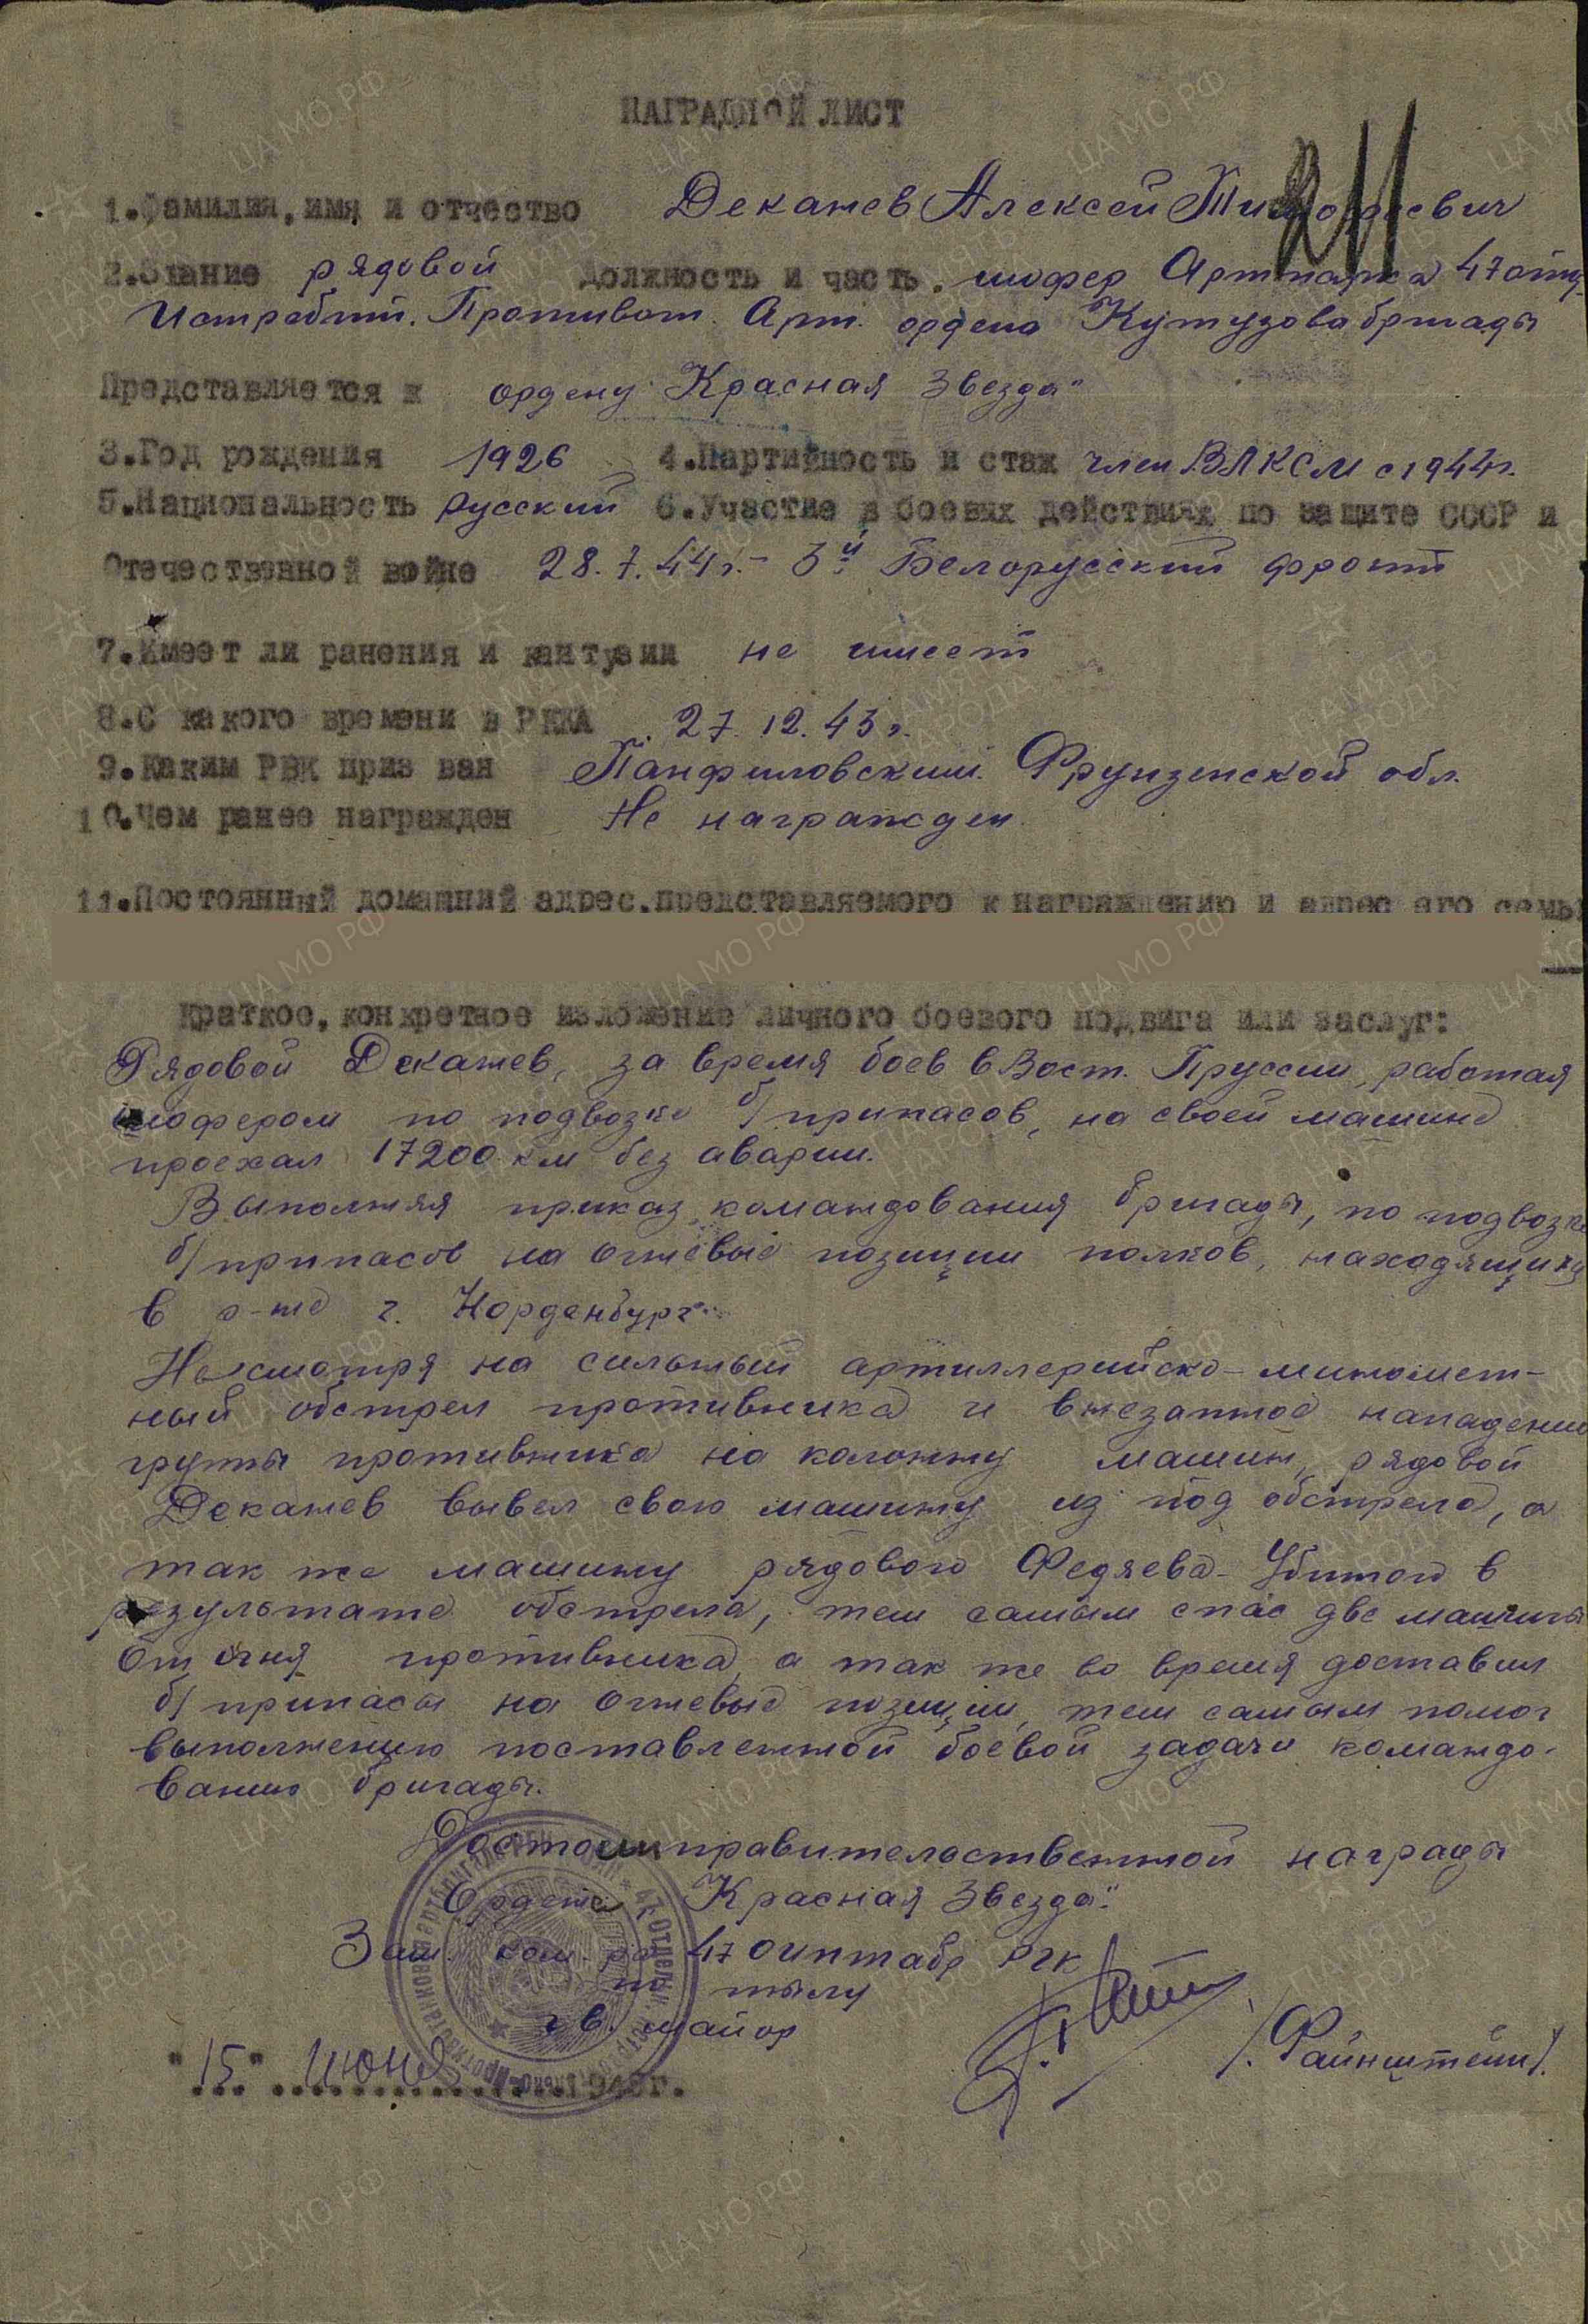 НАГРАДНОЙ ЛИСТ
1.Фамилия,имя и отчество Декажев Алексей Тимофеевич
2.Звание рядовой должность и часть. шофер Артпарка 47 отд.
Истребит. Противот. Арт. ордена Кутузова бригады
Представляется к ордену "Красная Звезда"
3.Год рождения 1926 4.Партийность и стаж член ВЛКСМ с 1944г.
5.Национальность русский 6.Участие в боевых действиях по защите СССР и
Отечественной войне 28.7.44г.- 3й Белорусский фронт
7.Имеет ли ранения и контузии не имеет
8.С какого времени в РККА 27.12.43г.
9.Каким РВК приз ван Панфиловский Фрунзенской обл.
10.Чем ранее награжден Не награжден
11.Постоянный домашний адрес.представляемого к награждению и адрес его семьи
Краткое,конкретное изложение личного боевого подвига или заслуг:
Рядовой Декажев, за время боев в Вост. Пруссии, работая
шофером по подвозке б/припасов, на своей машине
проехал 17200 км без аварии.
Выполняя приказ командования бригады, по подвозке
б/припасов на огневые позиции полков, находящихся
в р-не г. Норденбург.
Несмотря на сильный артиллерийско-миномет-
ный обстрел противника и внезапное нападение
группы противника на колонну машин, рядовой
Декажев вывел свою машину из под обстрела, а
так же машину рядового Федяева - Убитого в
результате обстрела, тем самым спас две машины
от огня противника, а так же во время доставил
б/припасы на огневые позиции, тем самым помог
выполнению поставленной боевой задачи командо-
ванию бригады.
Достоин правительственной награды
Ордена "Красная Звезда".
Зам. ком-ра 47 оиптабр РГК
по тылу
гв. майор
/Файнштейн/.
"15" июня 1945г.